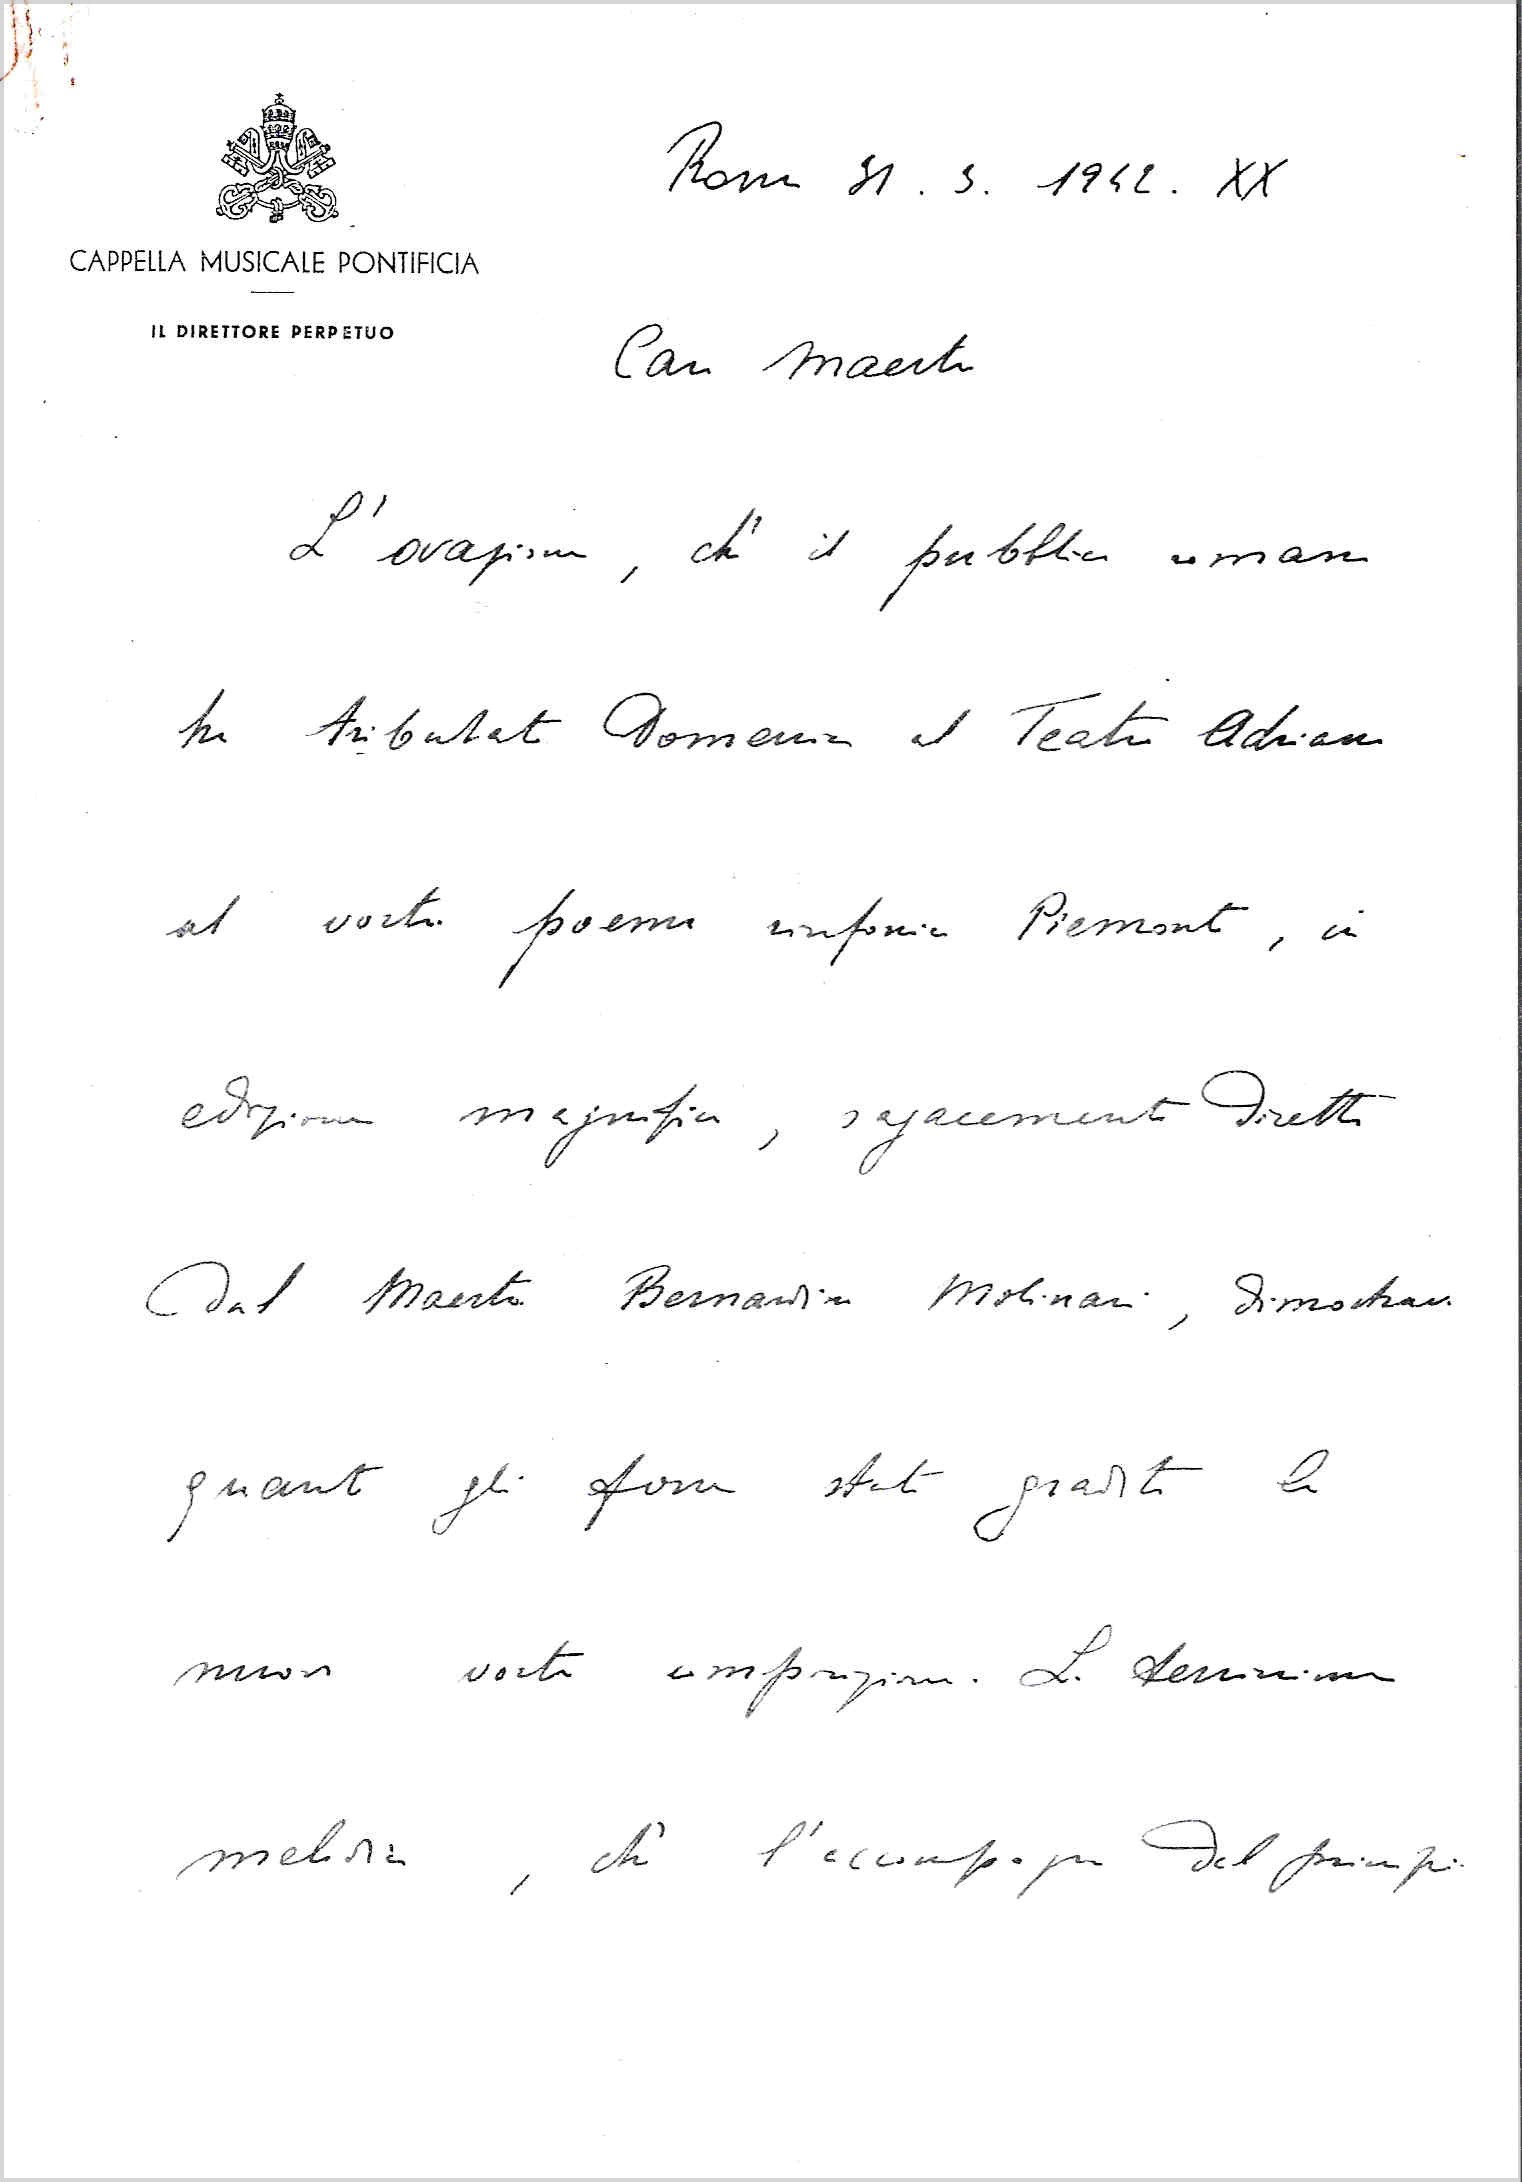 Roma 31. 3. 1942. XX
CAPPELLA MUSICALE PONTIFICIA
IL DIRETTORE PERPETUO
Caro Maestro
L'ovazione, che il pubblico romano
ha tributato Domenica al Teatro Adriano
al vostro poema sinfonico Piemonte, in
edizione magnifica, sagacemente diretta
dal Maestro Bernardino Molinari, dimostrava
quanto gli fosse stata gradita la
nuova vostra composizione. La
melodia, che l'accompagna dal principio